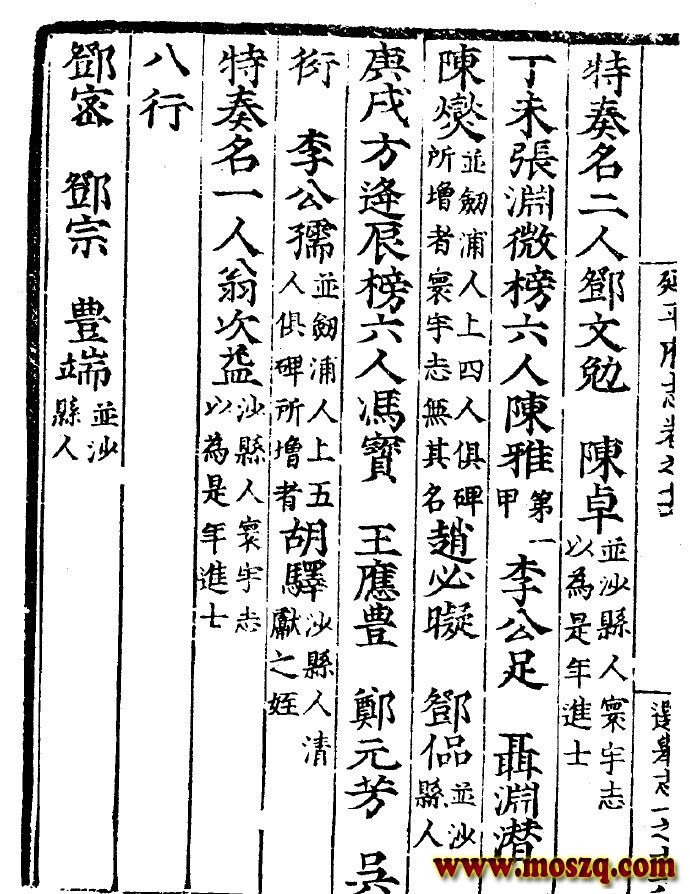 延平府志卷之十
選舉志一之十
特奏名二人鄧文勉 陳卓並沙縣人寰宇志以為是年進士
丁未張淵微榜六人陳雅第一甲 李公足 聶淵潜
陳爕並劒浦人上四人俱碑所增者寰宇志無其名趙必㬥 鄧侶並沙縣人
庚戌方逢辰榜六人馮寳 王應豊 鄭元芳 吳
衍 李公孺並劒浦人上五人俱碑所增者胡驛沙縣人清獻之姪
特奏名一人翁次益沙縣人寰宇志以為是年進士
八行
鄧密 鄧宗 豊端並沙縣人
www.moszq.com